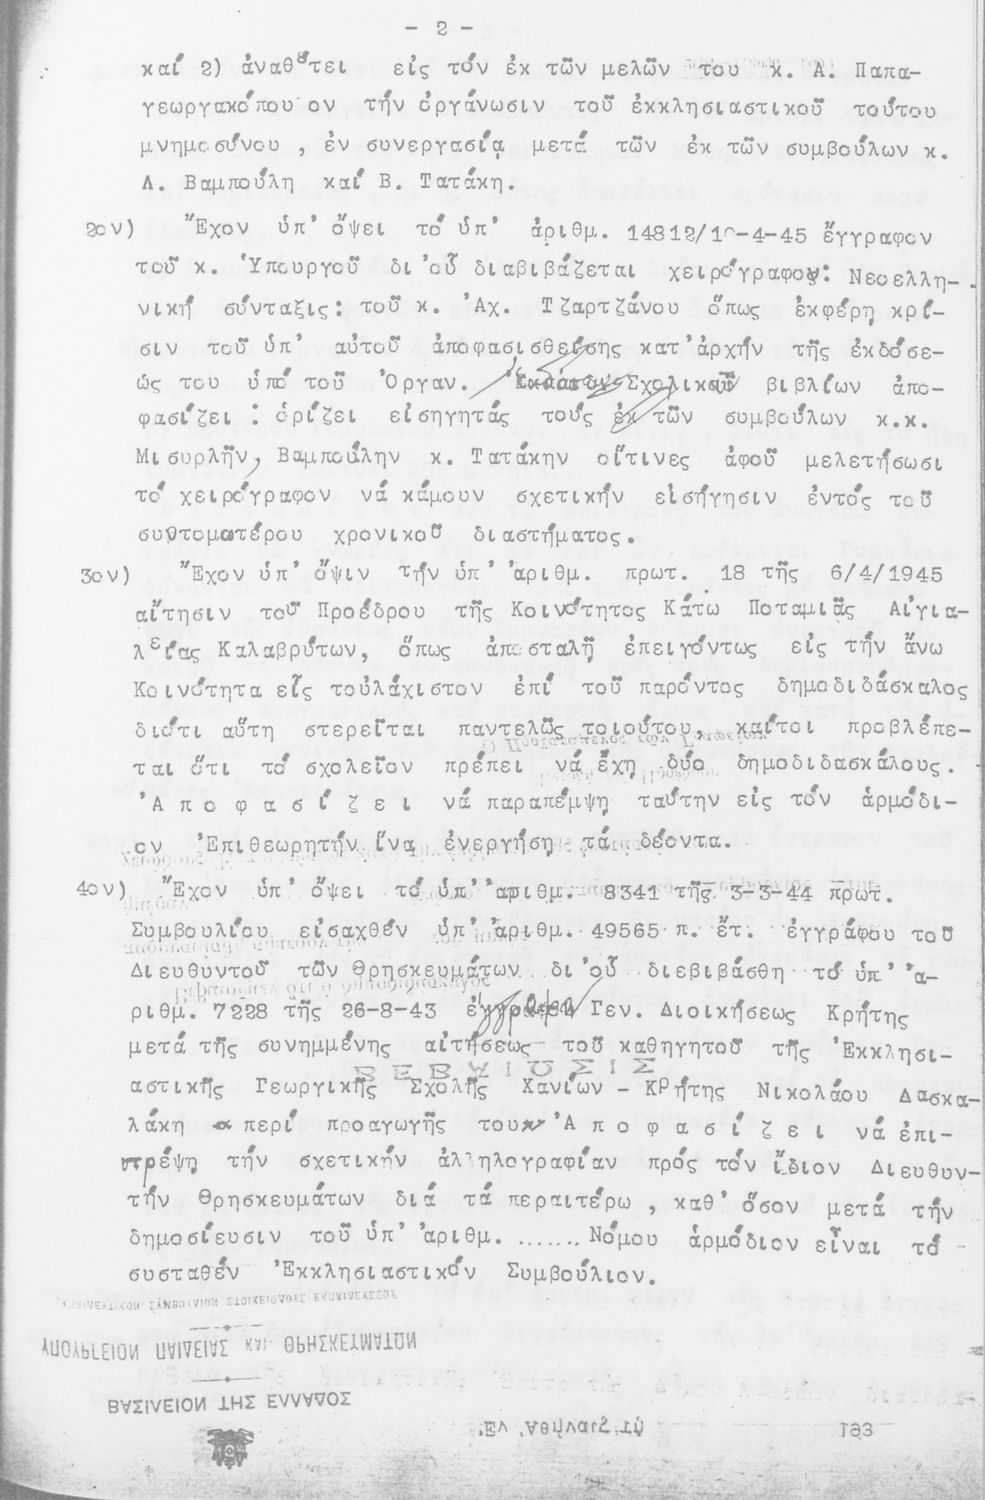 - 2 -
καί 2) ἀναθέτει εἰς τόν ἐκ τῶν μελῶν του κ. Α. Παπα-
γεωργακόπουλον τήν ὀργάνωσιν τοῦ ἐκκλησιαστικοῦ τούτου
μνημοσύνου , ἐν συνεργασίᾳ μετά τῶν ἐκ τῶν συμβούλων κ.
Λ. Βαμπούλη καί Β. Τατάκη.
2ον) Ἔχον ὑπ' ὄψει τό ὑπ' ἀριθμ. 14812/10-4-45 ἔγγραφον
τοῦ κ. Ὑπουργοῦ δι'οὗ διαβιβάζεται χειρόγραφον: Νεοελλη-
νική σύνταξις: τοῦ κ. Ἀχ. Τζαρτζάνου ὅπως ἐκφέρῃ κρί-
σιν τοῦ ὑπ' αὐτοῦ ἀποφασισθείσης κατ'ἀρχήν τῆς ἐκδόσε-
ώς του ὑπό τοῦ Ὀργαν. Σχολικῶν βιβλίων ἀπο-
φασίζει : ὁρίζει εἰσηγητάς τούς ἐκ τῶν συμβούλων κ.κ.
Μισυρλῆν, Βαμπούλην κ. Τατάκην οἵτινες ἀφοῦ μελετήσωσι
τό χειρόγραφον νά κάμουν σχετικήν εἰσήγησιν ἐντός τοῦ
συντομωτέρου χρονικοῦ διαστήματος.
3ον) Ἔχον ὑπ' ὄψιν τήν ὑπ' ἀριθμ. πρωτ. 18 τῆς 6/4/1945
αἴτησιν τοῦ Προέδρου τῆς Κοινότητος Κάτω Ποταμιᾶς Αἰγια-
λείας Καλαβρύτων, ὅπως ἀποσταλῇ ἐπειγόντως εἰς τήν ἄνω
Κοινότητα εἷς τοὐλάχιστον ἐπί τοῦ παρόντος δημοδιδάσκαλος
διότι αὕτη στερεῖται παντελῶς τοιούτου, καίτοι προβλέπε-
ται ὅτι τό σχολεῖον πρέπει νά ἔχῃ δύο δημοδιδασκάλους.
Ἀ π ο φ α σ ί ζ ε ι νά παραπέμψῃ ταύτην εἰς τόν ἁρμόδι-
ον Ἐπιθεωρητήν ἵνα ἐνεργήσῃ τά δέοντα.
4ον) Ἔχον ὑπ' ὄψει τό ὑπ' ἀριθμ. 8341 τῆς 3-3-44 πρωτ.
Συμβουλίου εἰσαχθέν ὑπ' ἀριθμ. 49565 π. ἔτ. ἐγγράφου τοῦ
Διευθυντοῦ τῶν Θρησκευμάτων δι'οὗ διεβιβάσθη τό ὑπ' ἀ-
ριθμ. 7228 τῆς 26-8-43 ἔγγραφον Γεν. Διοικήσεως Κρήτης
μετά τῆς συνημμένης αἰτήσεως τοῦ καθηγητοῦ τῆς Ἐκκλησι-
αστικῆς Γεωργικῆς Σχολῆς Χανίων - Κρήτης Νικολάου Δασκα-
λάκη περί προαγωγῆς του Ἀ π ο φ α σ ί ζ ε ι νά ἐπι-
τρέψῃ τήν σχετικήν ἀλληλογραφίαν πρός τόν ἴδιον Διευθυν-
τήν Θρησκευμάτων διά τά περαιτέρω, καθ' ὅσον μετά τήν
δημοσίευσιν τοῦ ὑπ' ἀριθμ. ....... Νόμου ἁρμόδιον εἶναι τό
συσταθέν Ἐκκλησιαστικόν Συμβούλιον.
ΥΠΟΥΡΓΕΙΟΝ ΠΑΙΔΕΙΑΣ ΚΑΙ ΘΡΗΣΚΕΥΜΑΤΩΝ
ΒΑΣΙΛΕΙΟΝ ΤΗΣ ΕΛΛΑΔΟΣ
Ἐν Ἀθήναις τῇ 193